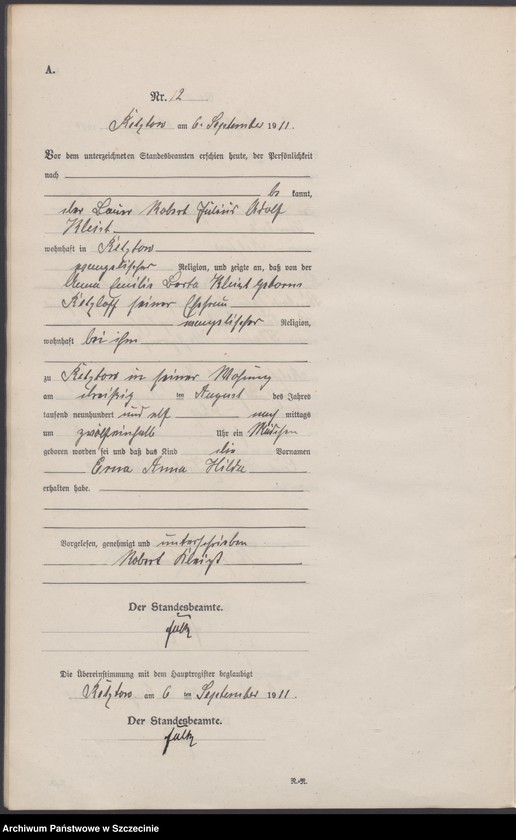 A.
Nr. 12
Ketztow am 6. September 1911.
Vor dem unterzeichneten Standesbeamten erschien heute, der Persönlichkeit
nach
be kannt,
der Bauer Robert Julius Adolf
Kleist
wohnhaft in Ketztow
evangelischer Religion, und zeigte an, daß von der
Anna Emilie Berta Kleist geborene
Ketzlaff seiner Ehefrau
evangelischer Religion,
wohnhaft bei ihm
zu Ketztow in seiner Wohnung
am dreißig im August des Jahres
tausend neunhundert und elf nach mittags
um zwölfeinhalb Uhr ein Mädchen
geboren worden sei und daß das Kind die Vornamen
Erna Anna Hilda
erhalten habe.
Vorgelesen, genehmigt und unterschrieben
Robert Kleist
Der Standesbeamte.
Falk
Die Übereinstimmung mit dem Hauptregister beglaubigt
Ketztow am 6 im September 1911.
Der Standesbeamte.
Falk
N.-R.
Archiwum Państwowe w Szczecinie